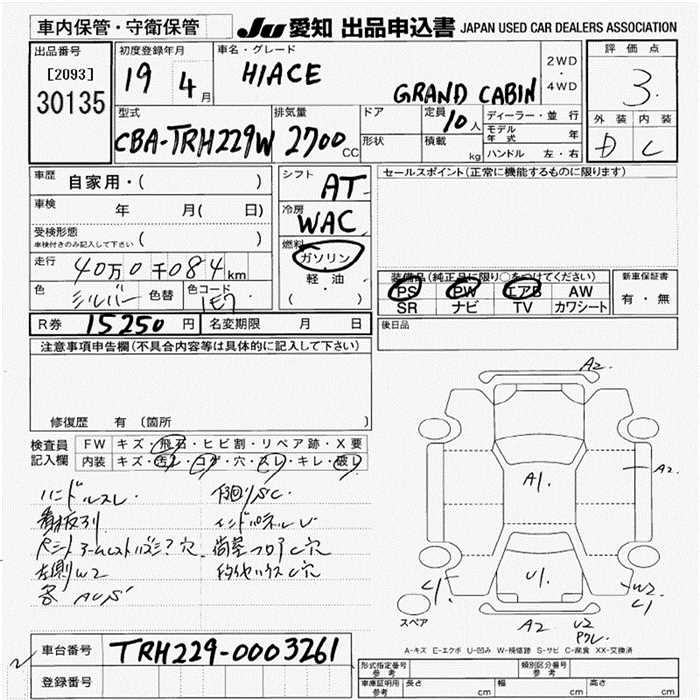 車内保管・守衛保管
JU 愛知 出品申込書 JAPAN USED CAR DEALERS ASSOCIATION
出品番号
[2093]
30135
初度登録年月
19 4月
車名・グレード
HIACE
GRAND CABIN
2WD
・
4WD
評価点
3
外装 内装
D C
型式
CBA-TRH229W
排気量
2700cc
ドア
形状
定員
10人
積載
kg
ディーラー・並行
モデル年式 年
ハンドル 左・右
車歴
自家用・( )
車検
年 月( 日)
受検形態
車検付きのみ記入して下さい ( )
走行
40万0千084km
色
シルバー 色替
色コード
1E7
シフト
AT
冷房
WAC
燃料
ガソリン
軽油
( )
セールスポイント(正常に機能するものに限ります)
装備品(純正品に限り○をつけてください)
PS PW エアB AW
SR ナビ TV カワシート
新車保証書
有・無
R券 15250円 名変期限 月 日
後日品
注意事項申告欄(不具合内容等は具体的に記入して下さい)
修復歴 有 (箇所
検査員
記入欄
FW キズ・飛石・ヒビ割・リペア跡・X要
内装 キズ・汚レ・コゲ・穴・スレ・キレ・破レ
ハンドルスレ
下回りSC
インドパネルU
左側W2
A2
A2
A1
U1
C1
W2
C1
A2
U2
スペア
A-キズ E-エクボ U-凹み W-補修跡 S-サビ C-腐食 XX-交換済
車台番号 TRH229-0003261
登録番号
形式指定番号
参考
類別区分番号
参考
車庫証明用
参考
長さ cm
幅 cm
高さ cm